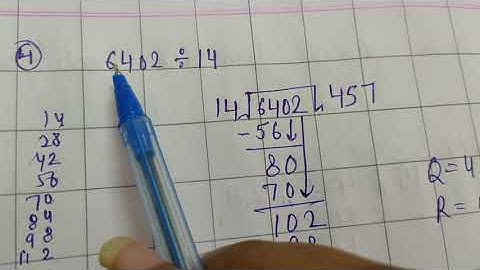 4
6402 ÷ 14
14
28
42
56
70
84
98
112
14 6402 457
-56
80
70
102
98
Q=4
R=